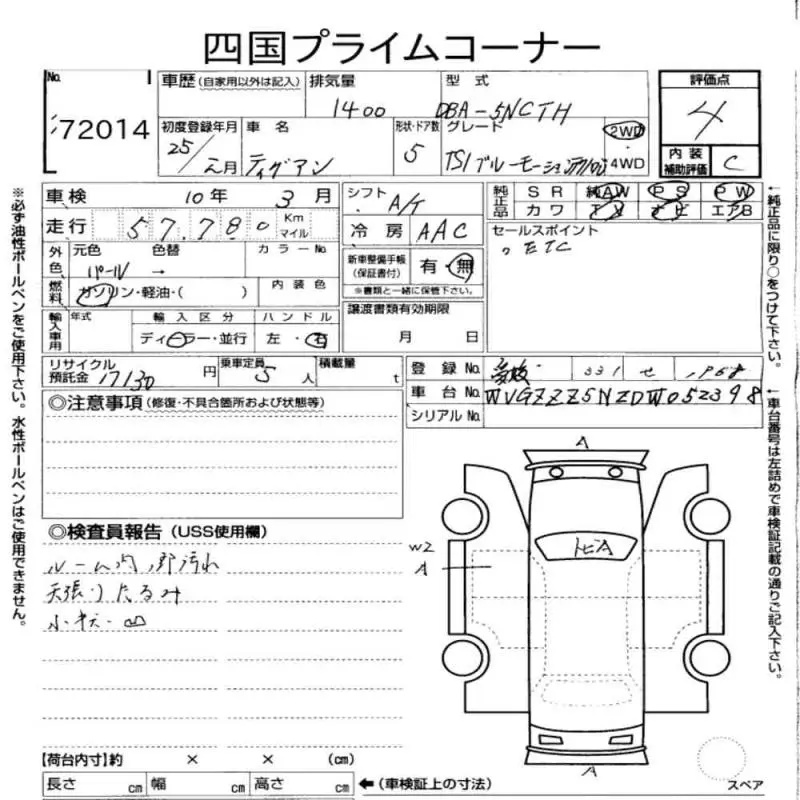 四国プライムコーナー
No. 72014
車歴 (自家用以外は記入)
排気量 1400
型式 DBA-5NCTH
評価点 4
初度登録年月 25/2月
車名 ティグアン
形状・ドア数 5
グレード TSIブルーモーション
2WD
4WD
内装補助評価 C
車検 10年 3月
シフト A/T
純正品 SR 純AW PS PW
カワ ナビ エアB
走行 57,780 Km マイル
冷房 AAC
セールスポイント
ETC
外色 元色 色替 カラーNo.
パール →
新車整備手帳(保証書付) 有・無
※書類と一緒に保管下さい。
燃料 ガソリン・軽油・( )
内装色
譲渡書類有効期限
月 日
輸入車用 年式 輸入区分 ハンドル
ディーラー・並行 左・右
リサイクル預託金 17130円
乗車定員 5人
積載量 t
登録No. 331 せ 1958
車台No. WVGZZZ5NZDW052398
シリアルNo.
◎注意事項(修復・不具合箇所および状態等)
◎検査員報告(USS使用欄)
ルーム内 汚れ
天張りたるみ
A
トビA
W2
A
A
スペア
【荷台内寸】約 × × (cm)
長さ cm 幅 cm 高さ cm
←(車検証上の寸法)
※必ず油性ボールペンをご使用下さい。水性ボールペンはご使用できません。
←純正品に限り○をつけて下さい。
←車台番号は左詰めで車検証記載の通りご記入下さい。